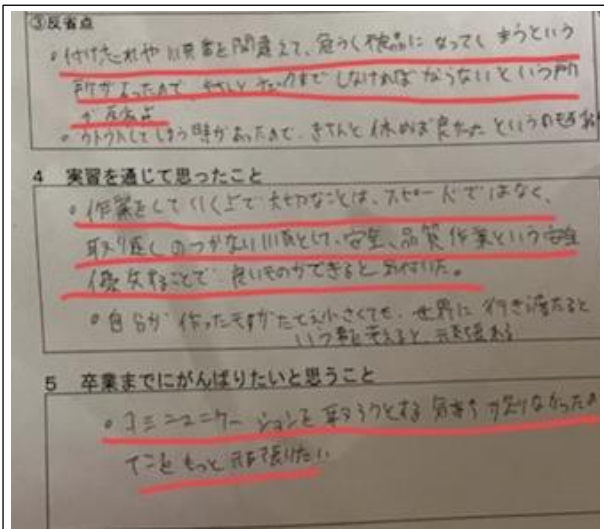 ③反省点
・付け忘れや順番を間違えて、危うく検品になってしまうという
所があったので、きちんとチェックまでしなければならないという所
が反省点
・ウトウトしてしまう時があったので、きちんと休めば良かったというのも
4 実習を通じて思ったこと
・作業をしていく上で大切なことは、スピードではなく、
取り返しのつかない 順として、安全、品質 作業という安全
優先することで 良いものができると気付いた。
・自分が作ったものがたとえ小さくても、世界に行き渡たると
いう事を考えると、
5 卒業までにがんばりたいと思うこと
・コミニュニケーションを取ろうとする気持ちが足りなかったの
でこともっと頑張りたい